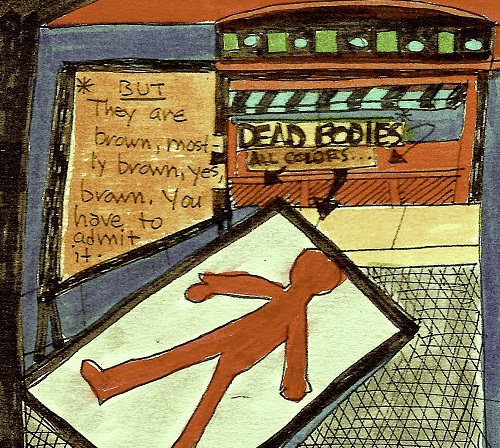 * BUT
They are
brown, most-
ly brown, yes,
brown. You
have to
admit
it.
DEAD BODIES*
ALL COLORS...